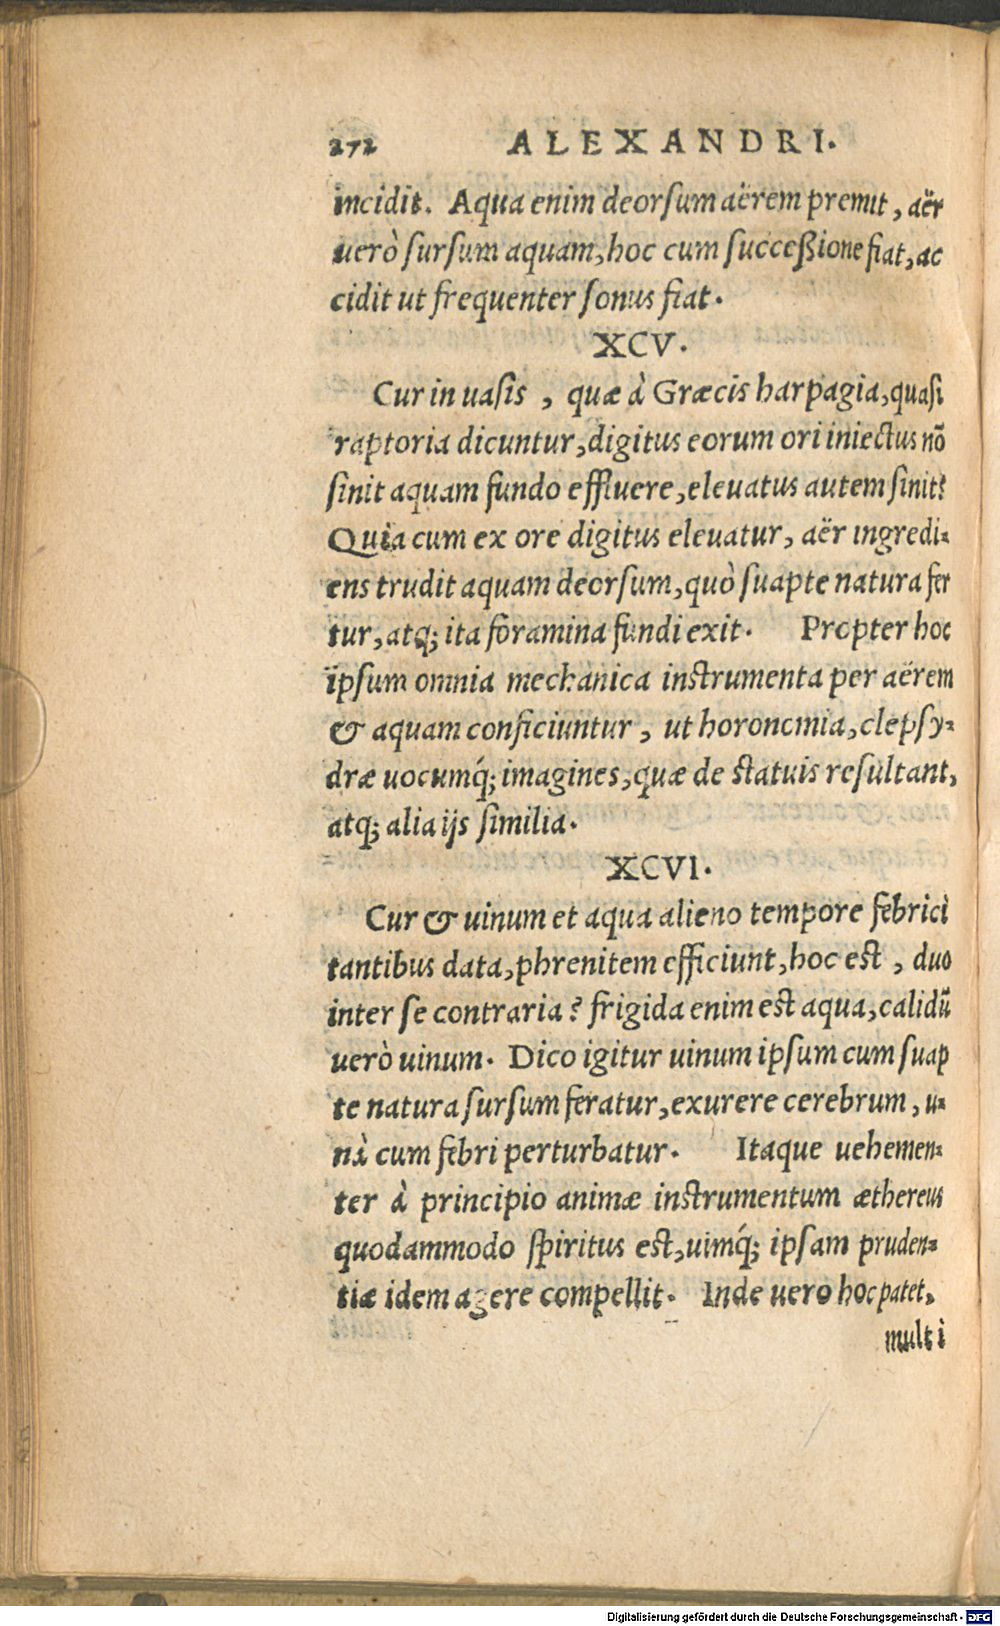 272 ALEXANDRI.
incidit. Aqua enim deorsum aërem premit, aër
uerò sursum aquam, hoc cum succeßione fiat, ac
cidit ut frequenter sonus fiat.
XCV.
Cur in uasis, quæ à Græcis harpagia, quasi
raptoria dicuntur, digitus eorum ori iniectus nõ
sinit aquam fundo effluere, eleuatus autem sinit?
Quia cum ex ore digitus eleuatur, aër ingredi-
ens trudit aquam deorsum, quò suapte natura fer
tur, atq; ita foramina fundi exit. Propter hoc
ipsum omnia mechanica instrumenta per aërem
& aquam conficiuntur, ut horonomia, clepsy-
dræ uocumq́; imagines, quæ de statuis resultant,
atq; alia ijs similia.
XCVI.
Cur & uinum et aqua alieno tempore febrici
tantibus data, phrenitem efficiunt, hoc est, duo
inter se contraria? frigida enim est aqua, calidũ
uerò uinum. Dico igitur uinum ipsum cum suap
te natura sursum feratur, exurere cerebrum, u-
nà cum febri perturbatur. Itaque uehemen-
ter à principio animæ instrumentum æthereus
quodammodo spiritus est, uimq́; ipsam pruden-
tiæ idem agere compellit. Inde uero hoc patet,
multi
Digitalisierung gefördert durch die Deutsche Forschungsgemeinschaft - DFG